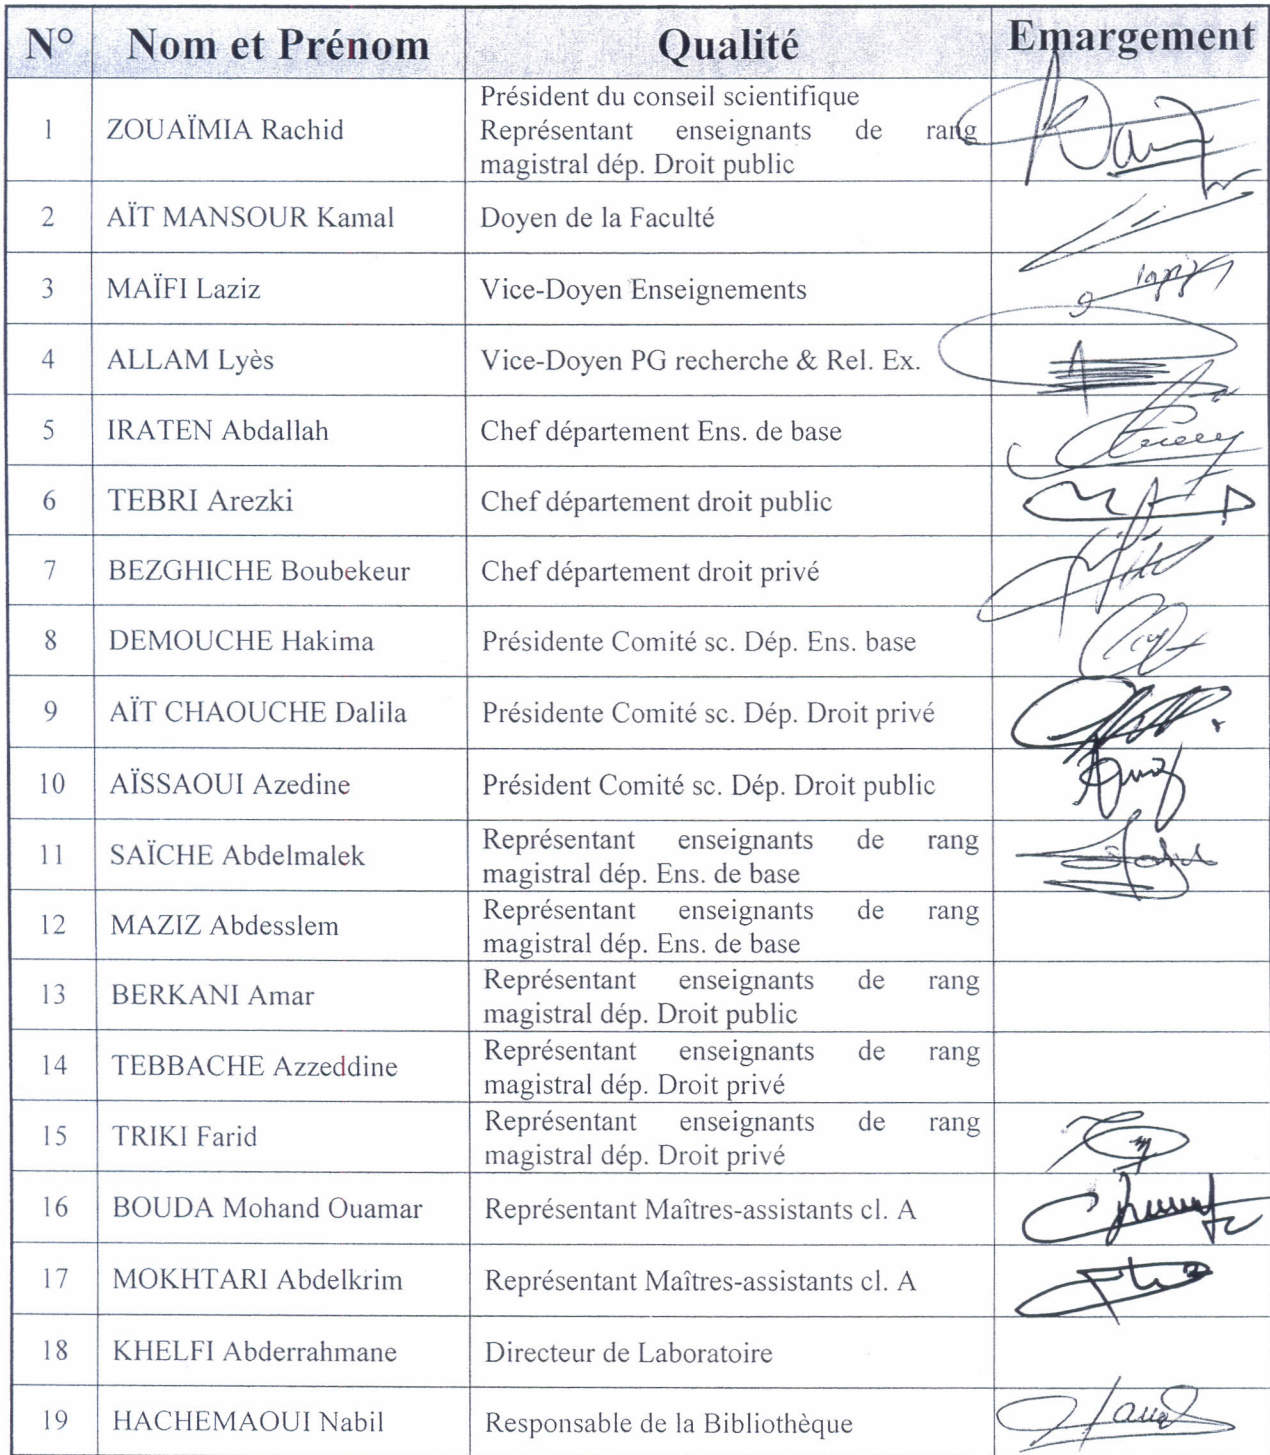 N° Nom et Prénom Qualité Emargement
1 ZOUAÏMIA Rachid Président du conseil scientifique
Représentant enseignants de rang
magistral dép. Droit public
2 AÏT MANSOUR Kamal Doyen de la Faculté
3 MAÏFI Laziz Vice-Doyen Enseignements
4 ALLAM Lyès Vice-Doyen PG recherche & Rel. Ex.
5 IRATEN Abdallah Chef département Ens. de base
6 TEBRI Arezki Chef département droit public
7 BEZGHICHE Boubekeur Chef département droit privé
8 DEMOUCHE Hakima Présidente Comité sc. Dép. Ens. base
9 AÏT CHAOUCHE Dalila Présidente Comité sc. Dép. Droit privé
10 AÏSSAOUI Azedine Président Comité sc. Dép. Droit public
11 SAÏCHE Abdelmalek Représentant enseignants de rang
magistral dép. Ens. de base
12 MAZIZ Abdesslem Représentant enseignants de rang
magistral dép. Ens. de base
13 BERKANI Amar Représentant enseignants de rang
magistral dép. Droit public
14 TEBBACHE Azzeddine Représentant enseignants de rang
magistral dép. Droit privé
15 TRIKI Farid Représentant enseignants de rang
magistral dép. Droit privé
16 BOUDA Mohand Ouamar Représentant Maîtres-assistants cl. A
17 MOKHTARI Abdelkrim Représentant Maîtres-assistants cl. A
18 KHELFI Abderrahmane Directeur de Laboratoire
19 HACHEMAOUI Nabil Responsable de la Bibliothèque